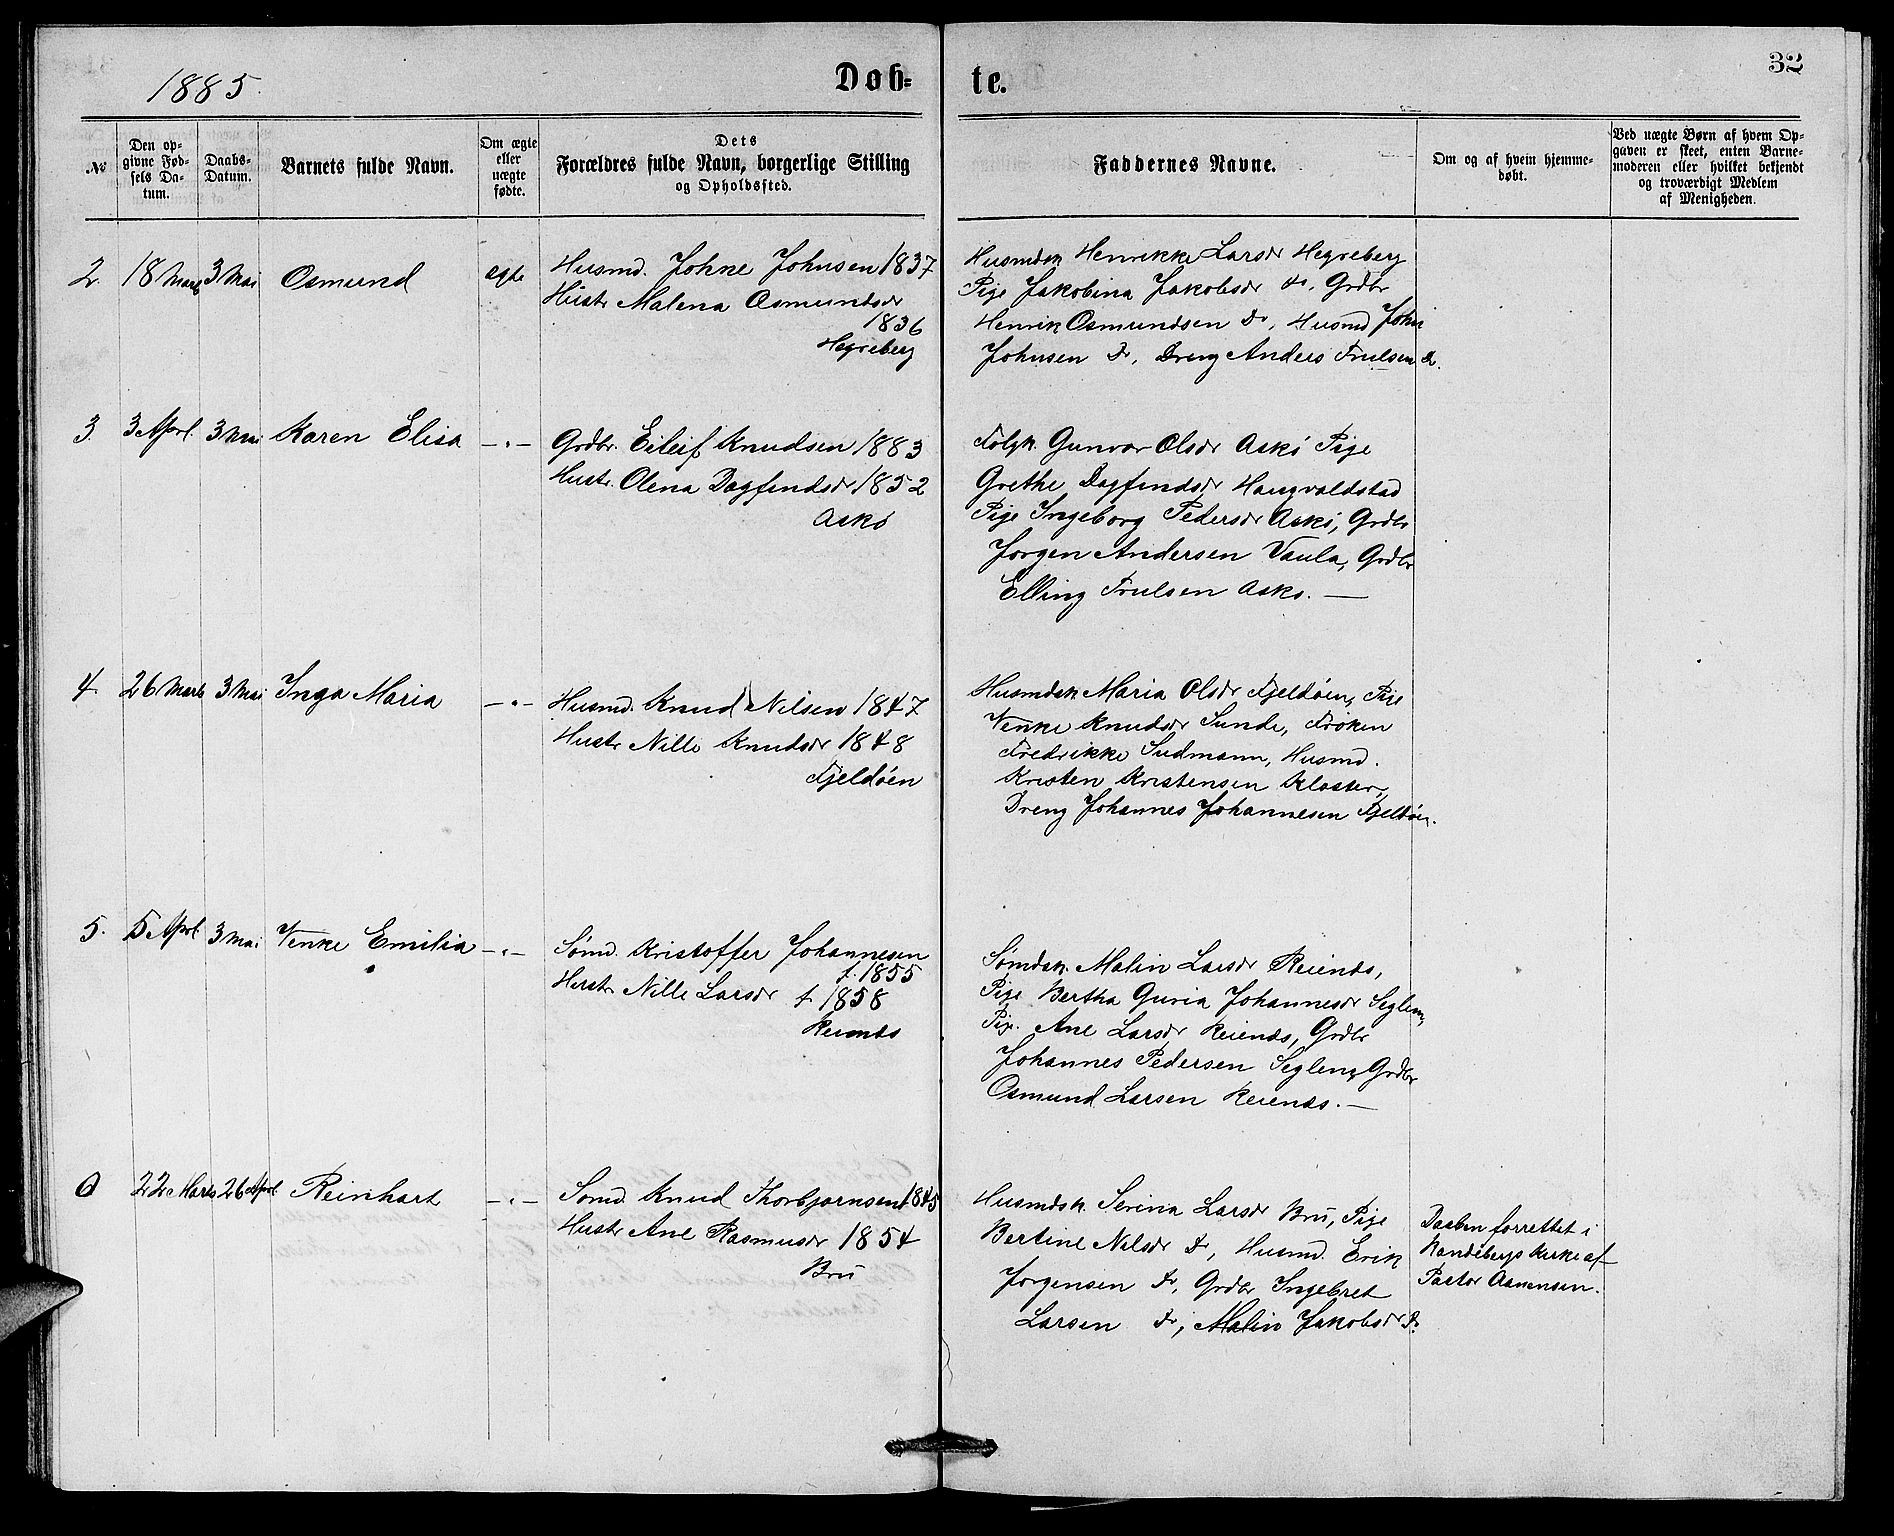 1885.
Døb-
te.
32
№
Den op-
givne Fød-
sels Da-
tum.
Daabs-
Datum.
Barnets fulde Navn.
Om ægte
eller
uægte
fødte.
Dets
Forældres fulde Navn, borgerlige Stilling
og Opholdssted.
Faddernes Navne.
Om og af hvem hjemme-
døbt.
Ved uægte Børn af hvem Op-
gaven er skeet, enten Barne-
moderen eller hvilket bekjendt
og troværdigt Medlem
af Menigheden.
2. 18 Marts 3 Mai Osmund ægte
Husmd. Johne Johnsen 1837
Hustr Malena Osmundsdr
1836
Hegreberg
Husmdsk Henrikke Larsdr Hegreberg
Pige Jakobina Jakobsdr do, Grdbr
Henrik Osmundsen Do, Husmd John
Johnsen Do, Dreng Anders Trulsen Do.
3. 3 April 3 Mai Karen Elisa -"-
Grdbr. Eileif Knudsen 1883
Hustr. Olena Dagfindsdr 1852
Askø
Folgk. Gunvor Olsdr Askø Pige
Grethe Dagfindsdr Haugvaldstad
Pige Ingeborg Pedersdr Askø, Grdbr
Jørgen Andersen Vaula, Grdbr
Elling Trulsen Askø. —
4. 26 Marts 3 Mai Inga Maria -"-
Husmd. Knud Nilsen 1847
Hustr Nille Knudsdr 1848
Fjeldøen
Husmdsk Maria Olsdr Fjeldøen, Pige
Venke Knudsdr Sunde, Frøken
Fredrikke Sudmann, Husmd.
Kristen Kristensen Kloster,
Dreng Johannes Johannesen Fjeldøen.
5. 5 April 3 Mai Venke Emilia -"-
Sømd. Kristoffer Johannesen
f. 1855
Hustr Nille Larsdr f. 1858
Reienes
Sømdsk. Malin Larsdr Reienes,
Pige Bertha Guria Johannesdr Seglem,
Pige. Ane Larsdr Reienes, Grdbr
Johannes Pedersen Seglem, Grdbr
Osmund Larsen Reienes. —
6 22 Marts 26 April Reinhart -"-
Sømd. Knud Thorbjørnsen 1845
Hustr Ane Rasmusdr 1854
Bru
Husmdsk. Serina Larsdr Bru, Pige
Bertine Nilsdr Do, Husmd. Erik
Jørgensen Do, Grdbr Ingebret
Larsen Do, Malin Jakobsdr Do.
Daaben forrettet i
Randebergs Kirke af
Pastor Asmensen.